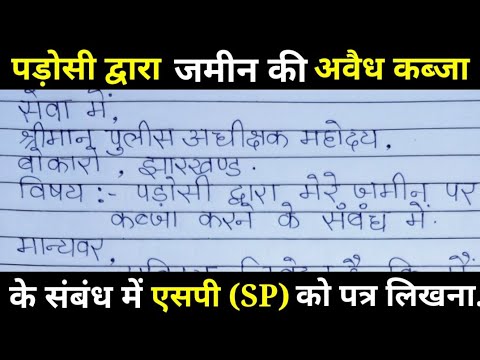 पड़ोसी द्वारा जमीन की अवैध कब्जा
सेवा में,
श्रीमान् पुलीस अधीक्षक महोदय,
बोकारो, झारखण्ड.
विषय :- पड़ोसी द्वारा मेरे जमीन पर
कब्जा करने के संबंध में.
मान्यवर,
के संबंध में एसपी (SP) को पत्र लिखना.